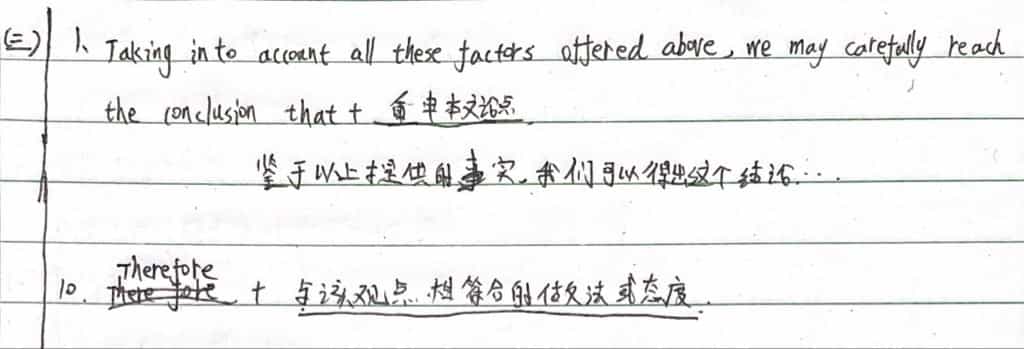 (三) 1、Taking in to account all these factors offered above, we may carefully reach
the conclusion that + 重申本文论点
鉴于以上提供的事实,我们可以得出这个结论…
Therefore
10. There fore + 与该观点相符合的做法或态度.